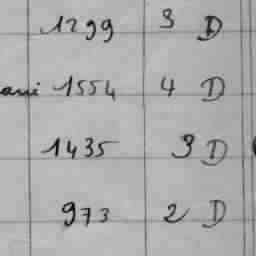 1299 3 D
ani 1554 4 D
1435 3 D
973 2 D